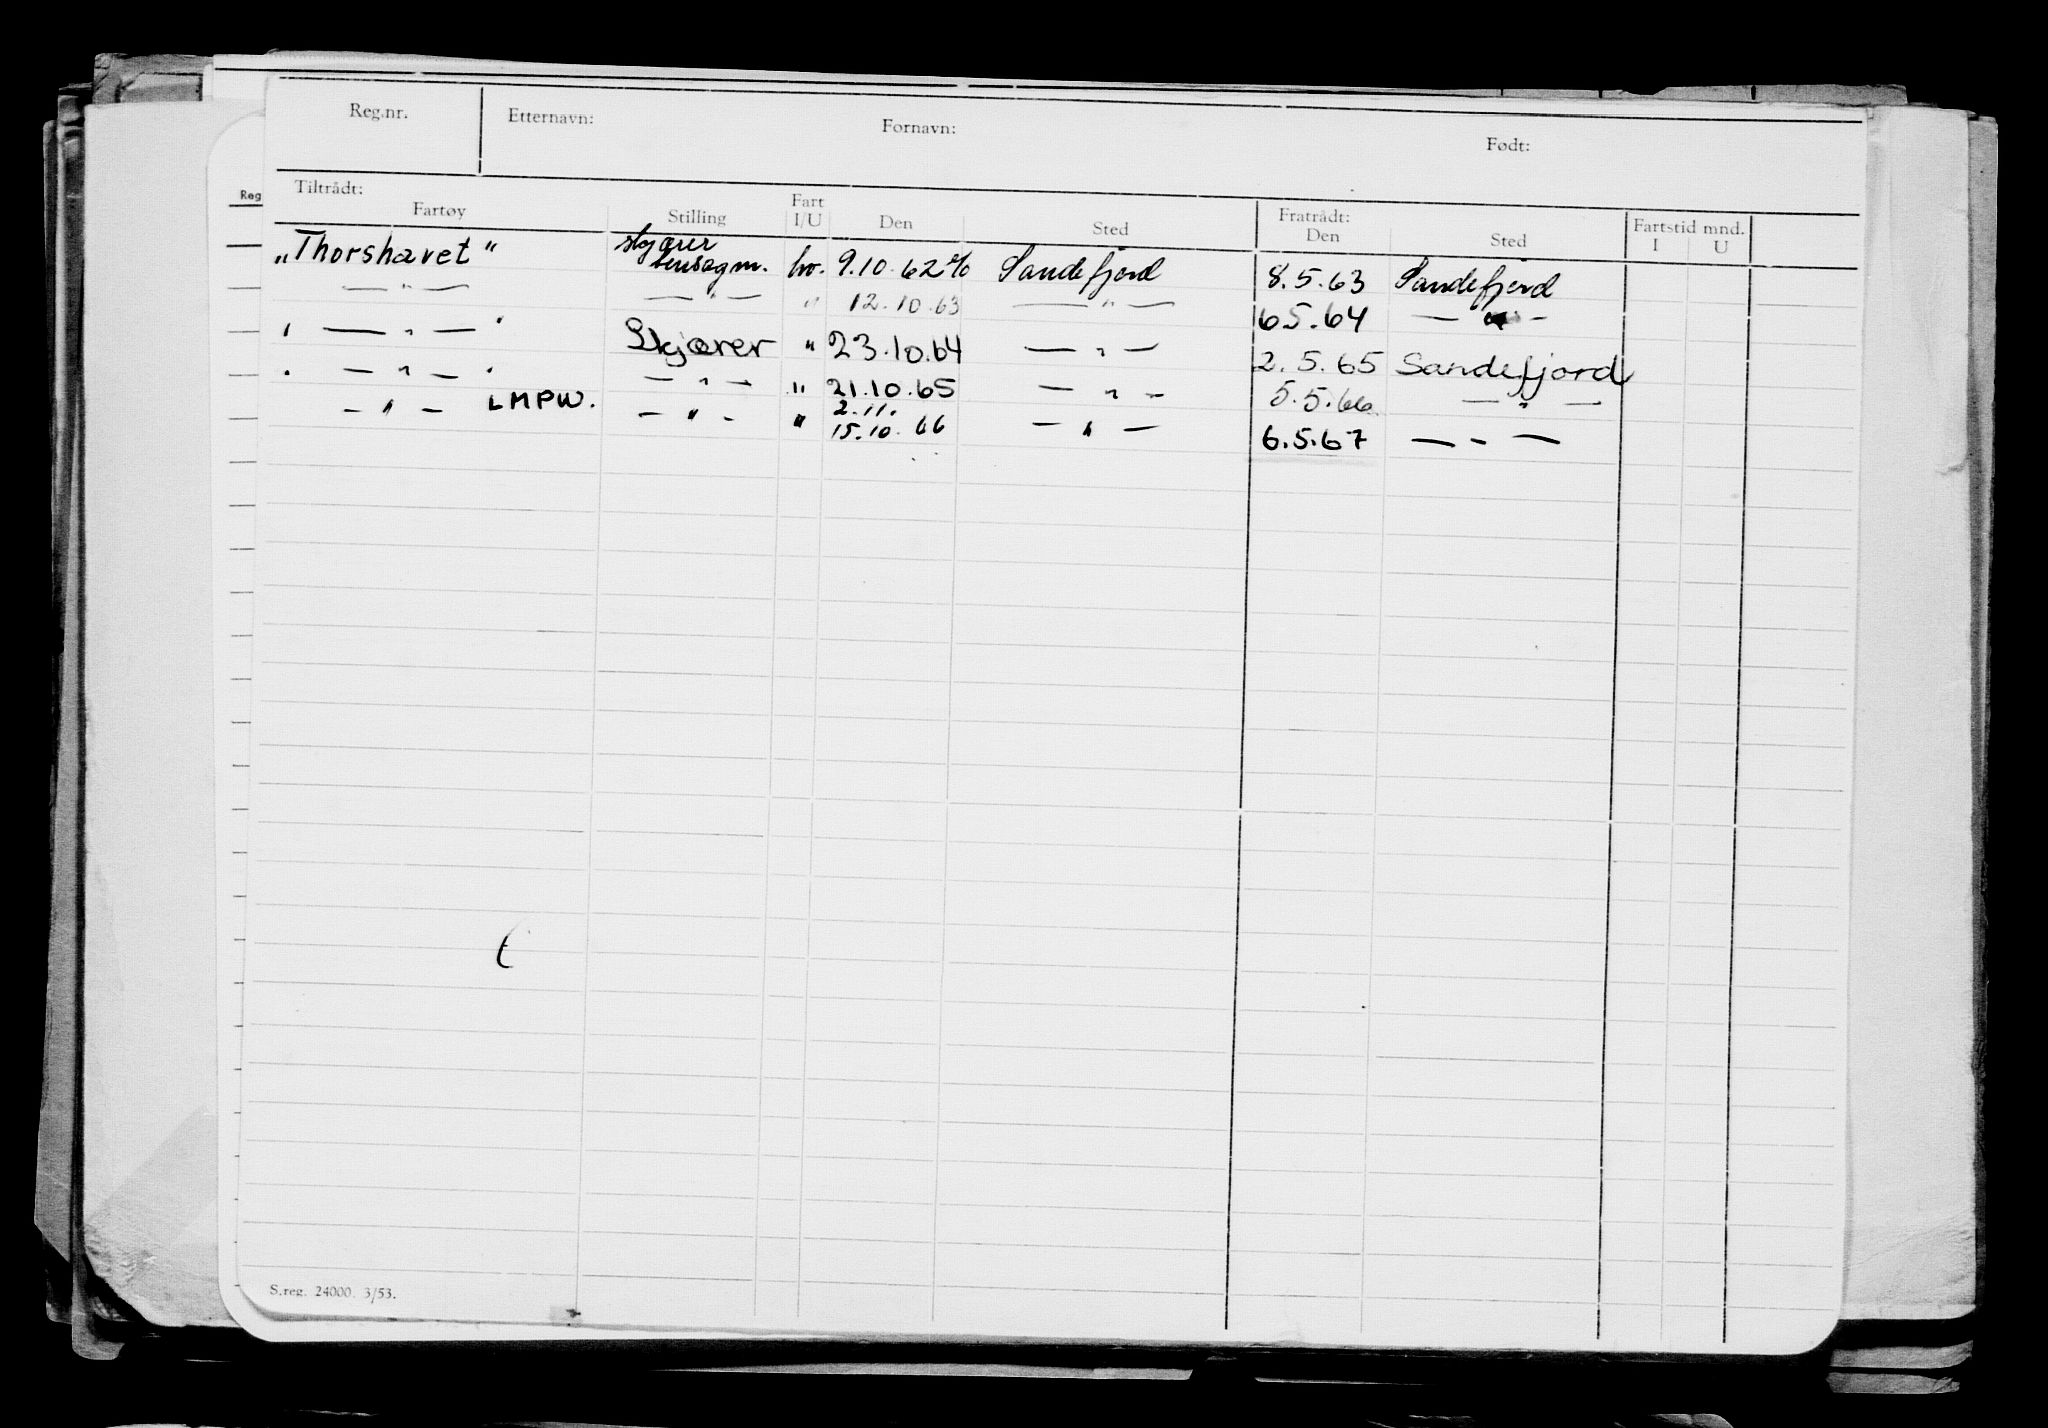 Reg.nr. Etternavn: Fornavn: Født:
Reg
Tiltrådt: Fratrådt:
Fartøy Stilling Fart I/U Den Sted Den Sted Fartstid mnd. I U
„Thorshavet" skjærer bensagm. hv. 9.10.62 Sandefjord 8.5.63 Sandefjord
— " — — " — " 12.10.63 — " — 6 5.64 — " —
' — " — ' Skjærer " 23.10.64 — " — 2.5.65 Sandefjord
. — " — ' — " — " 21.10.65 — " — 5.5.66 — " —
— " — LMPW. — " — " 2.11. 15.10.66 — " — 6.5.67 — " —
S.reg. 24000. 3/53.